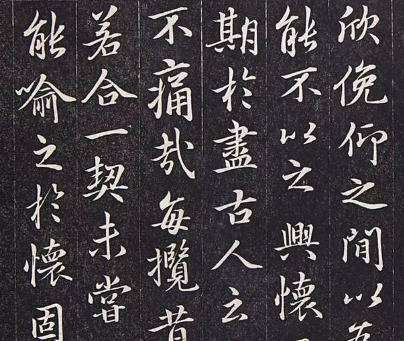 欣俛仰之間以為
能不以之興懷
期於盡古人云
不痛哉每攬昔
若合一契未嘗
能喻之於懷固